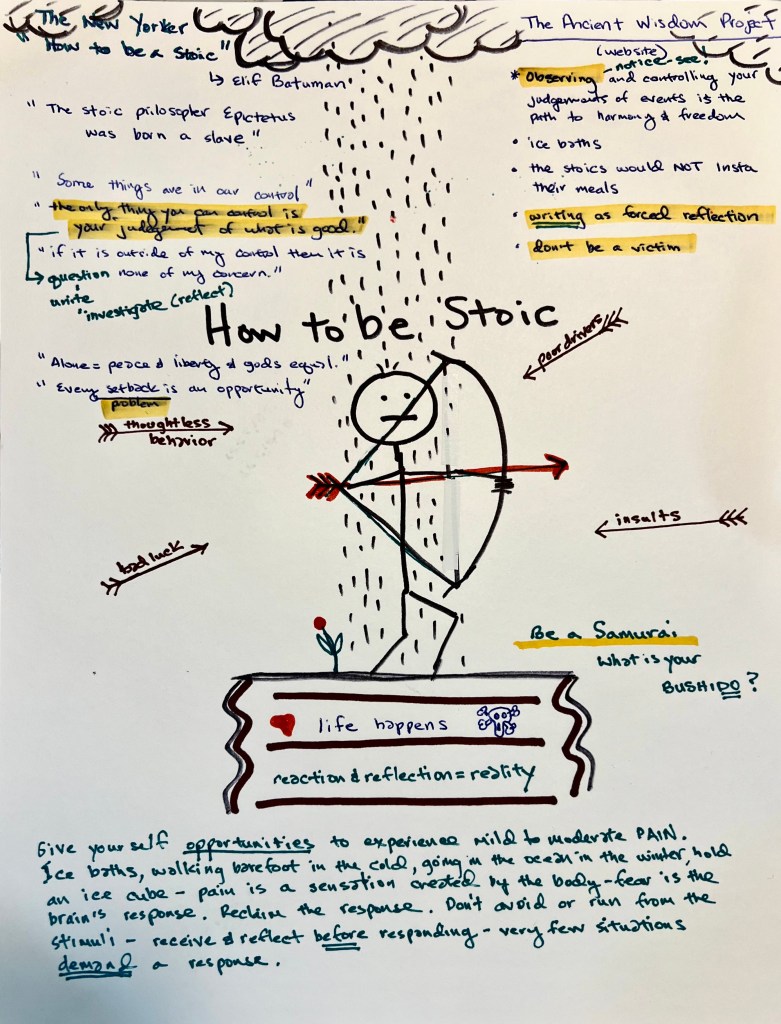 The New Yorker
"How to be a Stoic"
↳ Elif Batuman
"The stoic philosopher Epictetus
was born a slave"
"Some things are in our control"
"the only thing you can control is
your judgement of what is good."
"if it is outside of my control then it is
none of my concern."
→ question
write
"investigate (reflect)
The Ancient Wisdom Project
(website)
notice-see!
* Observing and controlling your
judgements of events is the
path to harmony & freedom
• ice baths
• the stoics would NOT insta
their meals
• writing as forced reflection
• don't be a victim
How to be Stoic
"Alone = peace & liberty & gods equal."
"Every setback is an opportunity"
problem
thoughtless
behavior
poor drivers
bad luck
insults
Be a Samurai
What is your
BUSHIDO?
life happens
reaction & reflection = reality
Give yourself opportunities to experience mild to moderate PAIN.
Ice baths, walking barefoot in the cold, going in the ocean in the winter, hold
an ice cube - pain is a sensation created by the body - fear is the
brain's response. Reclaim the response. Don't avoid or run from the
stimuli - receive & reflect before responding - very few situations
demand a response.